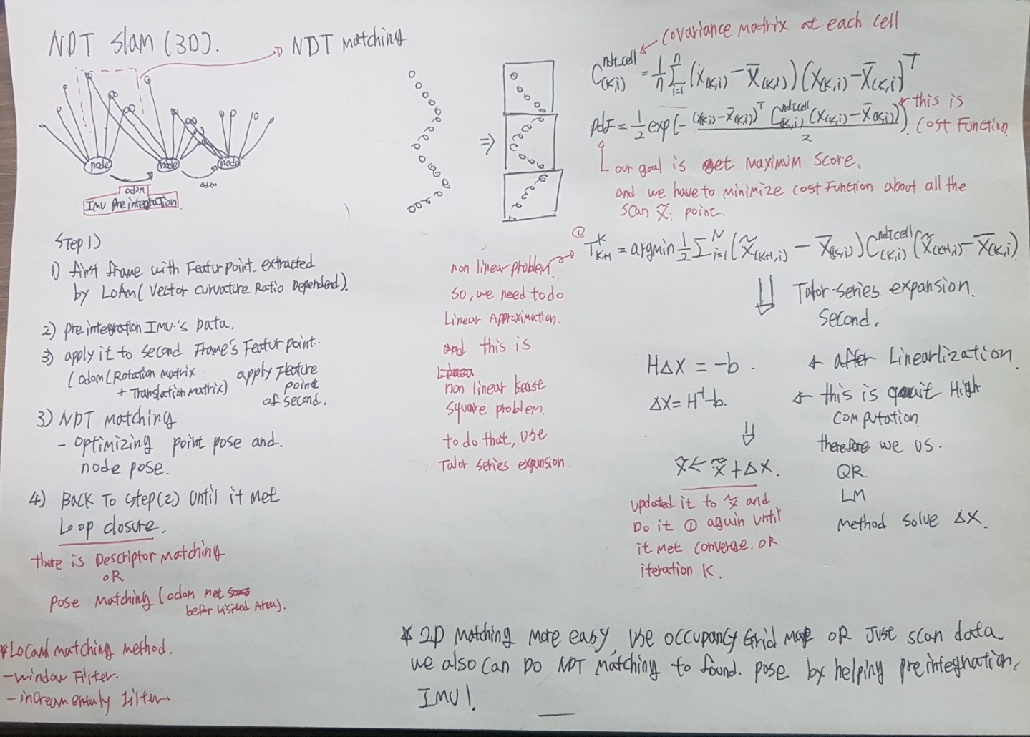 NDT Slam (3D).
NDT matching
node
node
node
odom
odom
IMU Preintegration
Covariance matrix at each cell
C_{(K,i)}^{ndt_cell} = \frac{1}{n} \sum_{i=1}^{n} (x_{(K,i)} - \overline{x}_{(K,i)}) (x_{(K,i)} - \overline{x}_{(K,i)})^T
pdf = \frac{1}{2} exp(- \frac{(x_{(K,i)} - \overline{x}_{(K,i)})^T C_{(K,i)}^{ndt cell} (x_{(K,i)} - \overline{x}_{(K,i)})}{2})
this is
Cost Function
our goal is get maximum score.
and we have to minimize cost Function about all the
scan x̃. point.
Step 1)
1) first frame with Featur point. extracted
by LOAM ( Vector curvature Ratio Dependend ).
2) pre integration IMU's Data.
3) apply it to second Frame's Featur point.
( odom ( Rotation matrix
+ Translation matrix )
apply Feature
point
of second.
3) NDT matching
- optimizing point pose and.
node pose.
4) BACK To step(2) Until it met
Loop closure.
there is Descriptor matching
OR
pose matching ( odom net
befor visited Area ).
* Local matching method.
- window Filter
- increamentuly filter
①
T_{K+1}^{K} = argmin \frac{1}{2} \sum_{i=1}^{N} (\tilde{x}_{(K+1,i)} - \overline{x}_{(K,i)}) C_{(K,i)}^{ndt cell} (\tilde{x}_{(K+1,i)} - \overline{x}_{(K,i)})
non linear problem.
so, we need to do
Linear Approximation.
and this is
non linear lease
square problem.
to do that, use
Talor series expansion
⇓ Talor-series expansion.
Second.
HΔX = -b.
ΔX = H^{-1}-b.
⇓
x̃ ← x̃ + ΔX.
* after Linearlization.
* this is quit High
computation
therefore we us.
QR.
LM
method solve ΔX.
updated it to x̃ and
Do it ① again until
it met converge. OR
iteration K.
* 2D matching more easy, Use occupancy Grid map OR Just scan data.
we also can Do NDT matching to found. pose by helping preintegnation.
IMU!